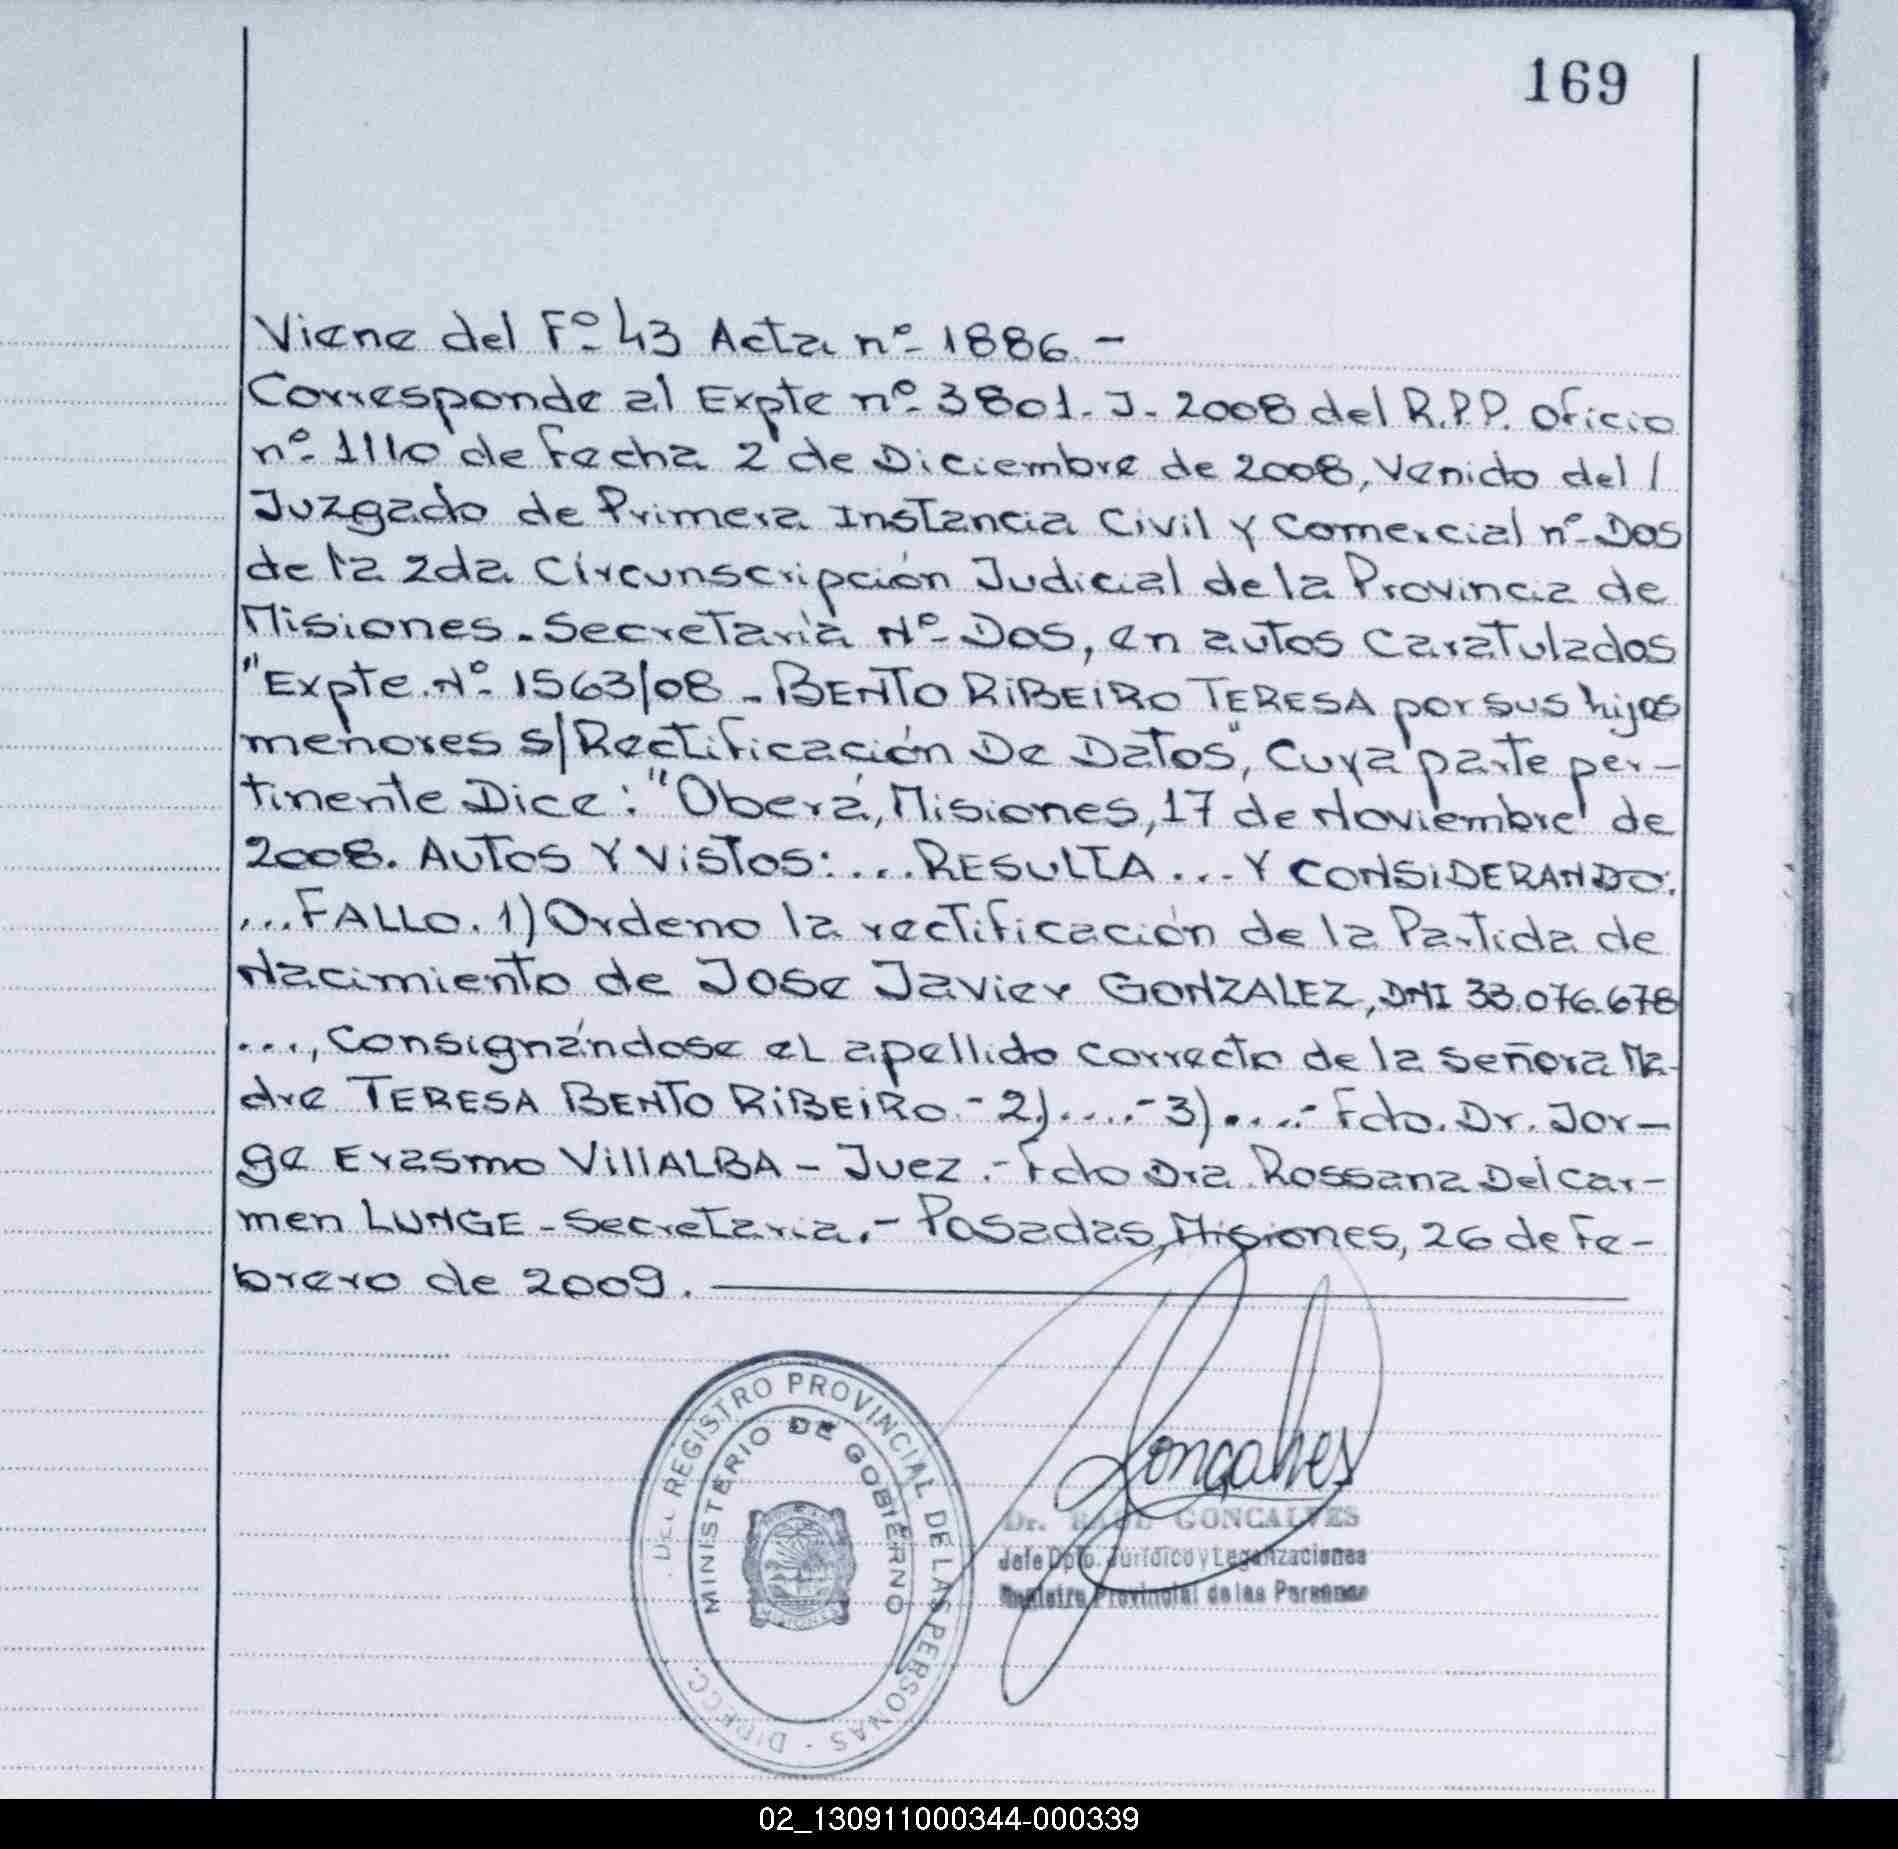 169
Viene del Fº 43 Acta nº 1886.-
Corresponde al Expte nº 3801-J-2008 del R.P.P. Oficio
nº 1110 de fecha 2 de Diciembre de 2008, venido del /
Juzgado de Primera Instancia Civil y Comercial nº Dos
de la 2da Circunscripción Judicial de la Provincia de
Misiones. Secretaría Nº Dos, en autos caratulados
"Expte. Nº 1563/08 - BENTO RIBEIRO TERESA por sus hijos
menores s/Rectificación De Datos", cuya parte per-
tinente Dice: "Oberá, Misiones, 17 de Noviembre de
2008. AUTOS Y VISTOS: ... RESULTA ... Y CONSIDERANDO:
...FALLO. 1) Ordeno la rectificación de la Partida de
Nacimiento de Jose Javier GONZALEZ, DNI 33.076.678
..., Consignándose el apellido correcto de la señora Ma-
dre TERESA BENTO RIBEIRO.- 2)....- 3)....- Fdo. Dr. Jor-
ge Erasmo VillALBA - Juez.- Fdo Dra. Rossana Del Car-
men LUNGE - Secretaria.- Posadas, Misiones, 26 de Fe-
brero de 2009.
DEL REGISTRO PROVINCIAL DE LAS PERSONAS
MINISTERIO DE GOBIERNO
Goncalves
Dr. RAUL GONCALVES
Jefe Dpto. Jurídico y Legalizaciones
Registro Provincial de las Personas
02_130911000344-000339